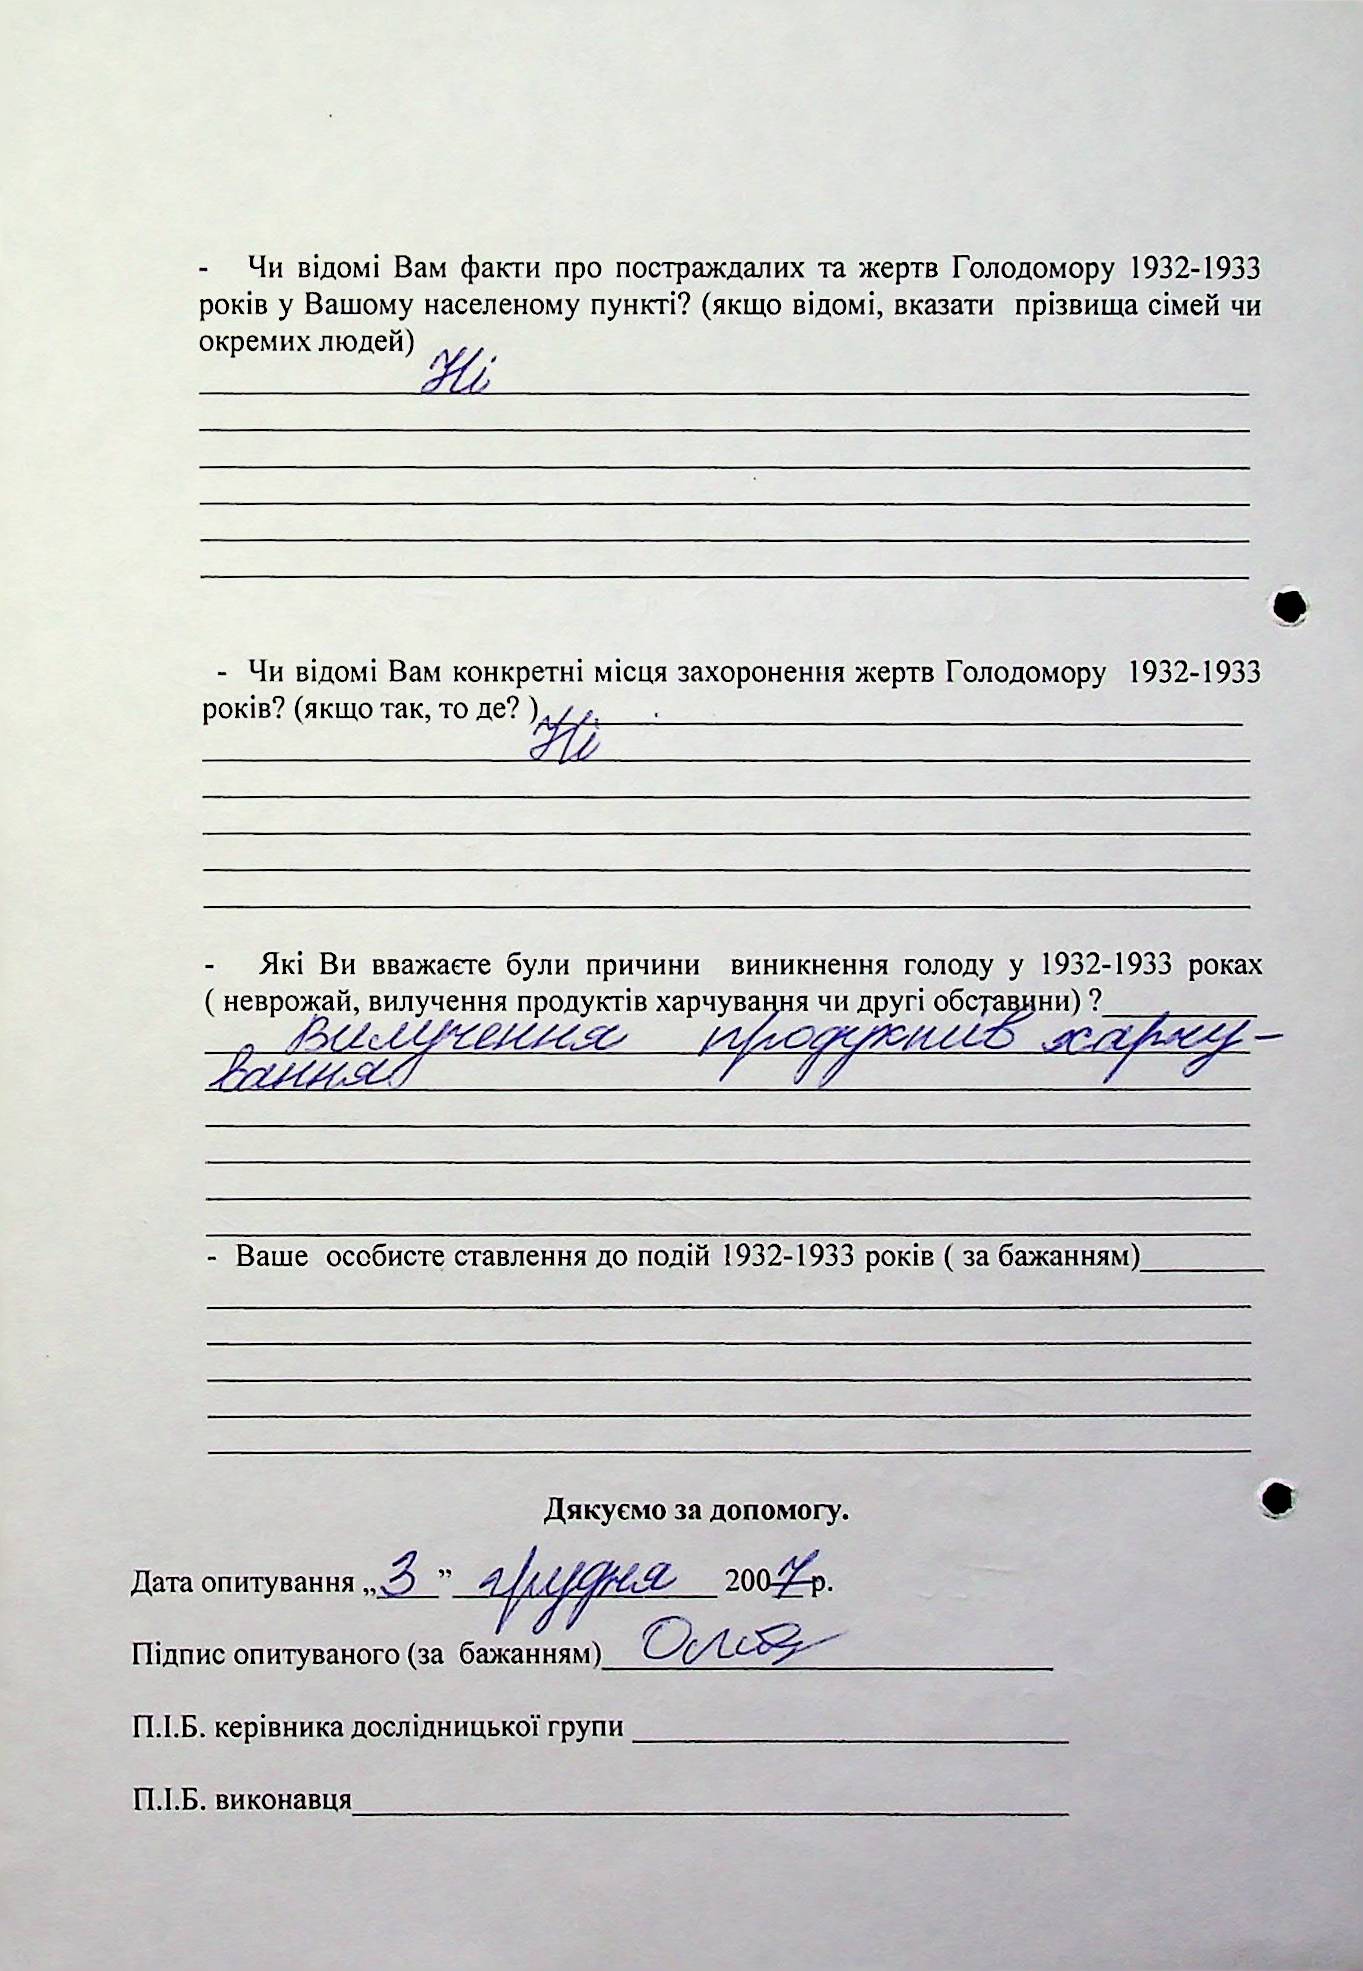 - Чи відомі Вам факти про постраждалих та жертв Голодомору 1932-1933
років у Вашому населеному пункті? (якщо відомі, вказати прізвища сімей чи
окремих людей)
Ні
- Чи відомі Вам конкретні місця захоронення жертв Голодомору 1932-1933
років? (якщо так, то де? )
Ні
- Які Ви вважаєте були причини виникнення голоду у 1932-1933 роках
( неврожай, вилучення продуктів харчування чи другі обставини) ?
Вилучення продуктів харчу-
вання
- Ваше особисте ставлення до подій 1932-1933 років ( за бажанням)
Дякуємо за допомогу.
Дата опитування „3” грудня 2007р.
Підпис опитуваного (за бажанням)
П.І.Б. керівника дослідницької групи
П.І.Б. виконавця